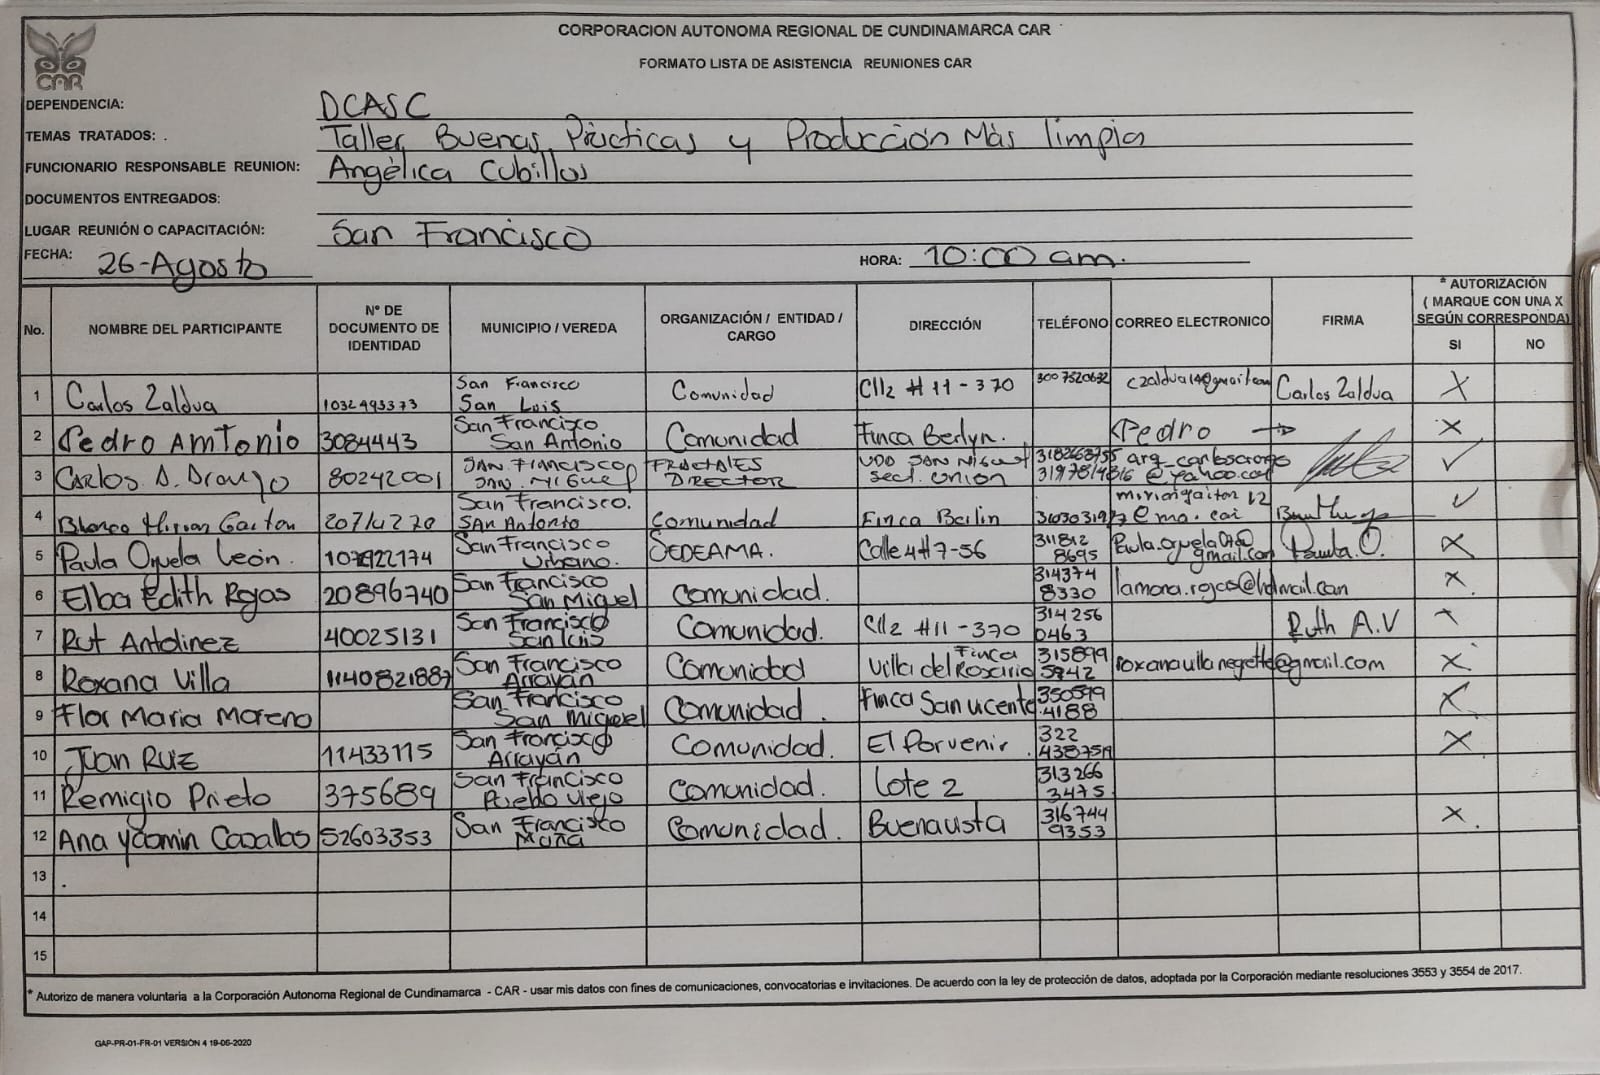 CORPORACION AUTONOMA REGIONAL DE CUNDINAMARCA CAR
FORMATO LISTA DE ASISTENCIA REUNIONES CAR
CAR
DEPENDENCIA: DCASC
TEMAS TRATADOS: Taller Buenas Prácticas y Producción Más limpia
FUNCIONARIO RESPONSABLE REUNION: Angélica Cubillos
DOCUMENTOS ENTREGADOS:
LUGAR REUNIÓN O CAPACITACIÓN: San Francisco
FECHA: 26-Agosto HORA: 10:00 am.
No. NOMBRE DEL PARTICIPANTE Nº DE DOCUMENTO DE IDENTIDAD MUNICIPIO / VEREDA ORGANIZACIÓN / ENTIDAD / CARGO DIRECCIÓN TELÉFONO CORREO ELECTRONICO FIRMA * AUTORIZACIÓN ( MARQUE CON UNA X SEGÚN CORRESPONDA) SI NO
1 Carlos Zaldua 1032493373 San Francisco San Luis Comunidad Cll2 # 11-370 3007520632 czaldua14@gmail.com Carlos Zaldua X
2 Pedro Amtonio 3084443 San Francisco San Antonio Comunidad Finca Berlyn. Pedro X
3 Carlos A. Araujo 80242001 San Francisco San Miguel FRACTALES DIRECTOR VDO SAN Miguel sect. union @yahoo.com ✓
4 Blanca Miriam Gaitan San Francisco. San Antonio Comunidad Finca Bailin ✓
5 Paula Oyuela León. San Francisco Urbano. SEDEAMA. Calle 4#7-56 311812 8695 gmail.com Paula.O. X
6 Elba Edith Rojas 20896740 San Francisco San Miguel Comunidad. 314374 8330 lamona.rojas@hotmail.com X
7 Rut Antolinez 40025131 San Francisco San Luis Comunidad. Cll2 #11-370 314256 0463 Ruth A.V X
8 Roxana Villa 1140821887 San Francisco Arrayán Comunidad Finca Villa del Rosario 315899 5942 roxanavillanegette@gmail.com X
9 Flor Maria Moreno San Francisco San Miguel Comunidad. Finca San vicente 350599 4188 X
10 Juan Ruiz 11433115 San Francisco Arrayán Comunidad. El Porvenir. 322 X
11 Remigio Prieto 375689 San Francisco Pueblo Viejo Comunidad. Lote 2 313266 3475
12 Ana Yasmin Casallas 52603353 San Francisco Muña Comunidad. Buenavista 316744 9353 X
13
14
15
* Autorizo de manera voluntaria a la Corporación Autonoma Regional de Cundinamarca - CAR - usar mis datos con fines de comunicaciones, convocatorias e invitaciones. De acuerdo con la ley de protección de datos, adoptada por la Corporación mediante resoluciones 3553 y 3554 de 2017.
GAP-PR-01-FR-01 VERSIÓN 4 19-06-2020